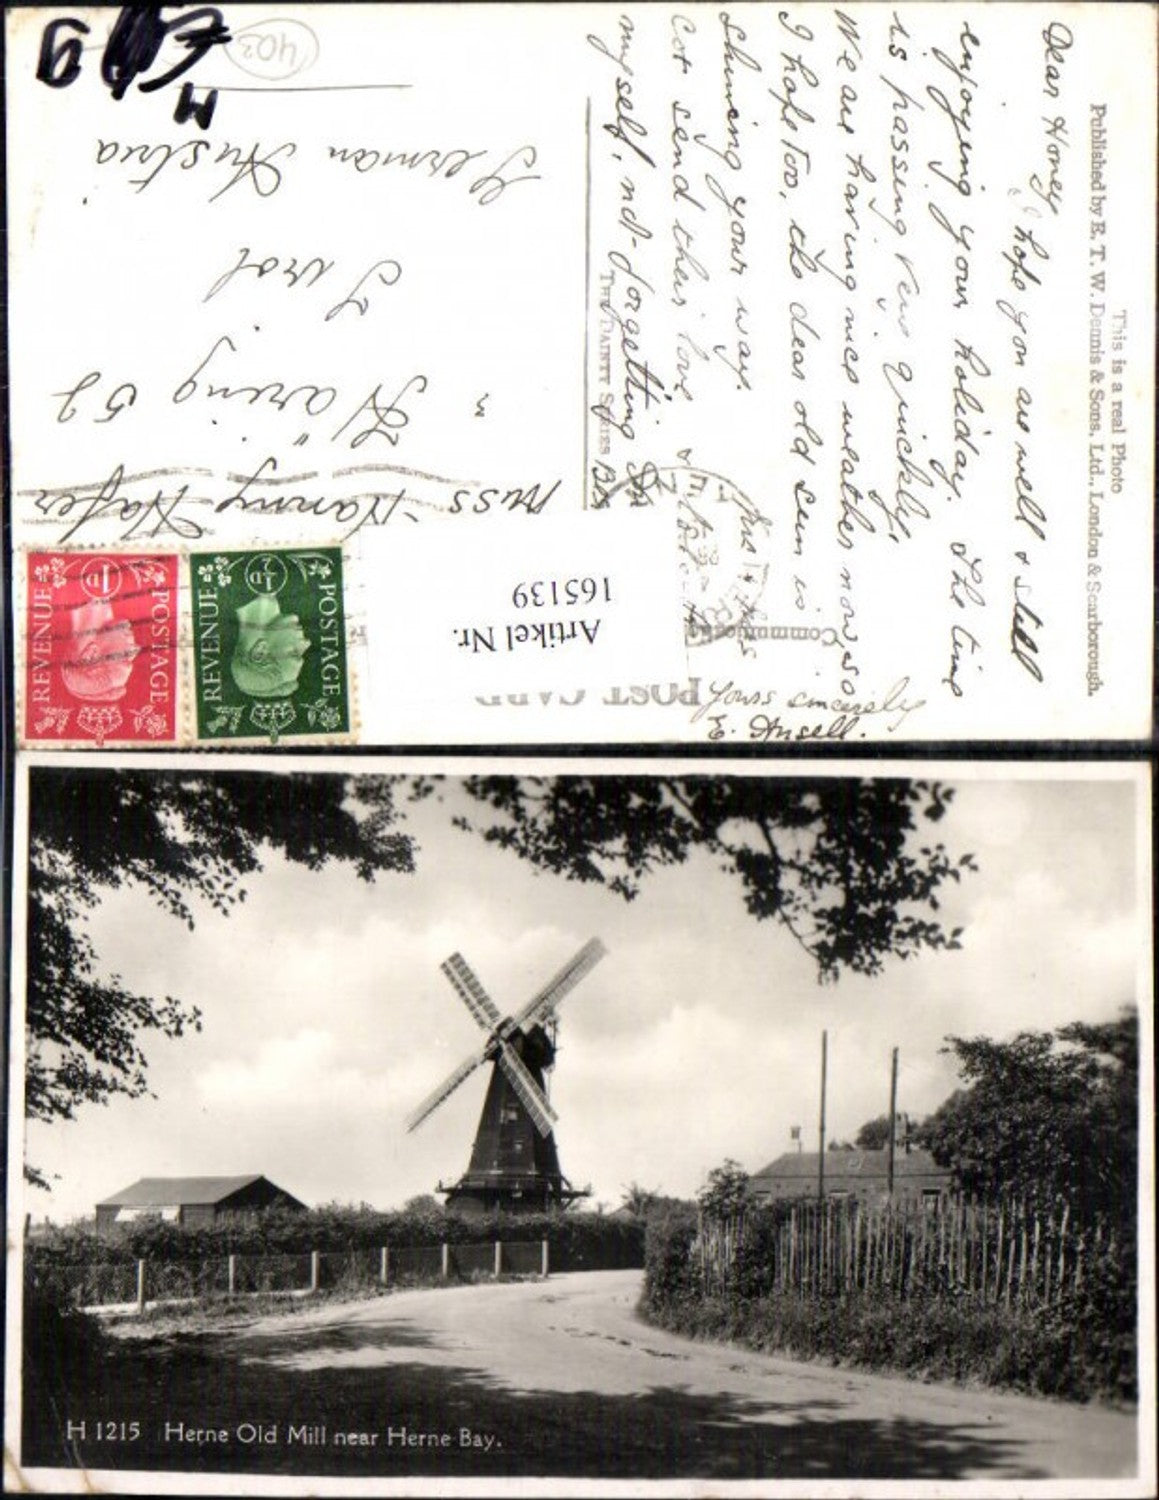 This is a real Photo
Published by E. T. W. Dennis & Sons, Ltd., London & Scarborough.
POST CARD
THE DAINTY SERIES
Dear Honey
I hope you are well & still
enjoying your holiday. The time
is passing very quickly.
We are having nice weather now so
I hope too, the dear old sun is
shining your way.
send their love &
myself, not forgetting
Yours sincerely
E. Ansell.
Miss Hanny Hafer
Häring 52
Tirol
German Austria
402
Artikel Nr.
165139
POSTAGE
REVENUE
½D
POSTAGE
REVENUE
1D
H 1215 Herne Old Mill near Herne Bay.